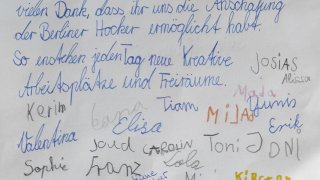 vielen Dank, dass ihr uns die Anschaffung
der Berliner Hocker ermöglicht habt.
So enstehen jeden Tag neue Kreative
Arbeitsplätze und Freiräume.
JOSIAS
Maja
Kerim
Tiam
MiJA
Yunis
Valentina
Elisa
Erik
Joud
CAROLIN
Toni J
DNI
Sophie
Franz
Lola